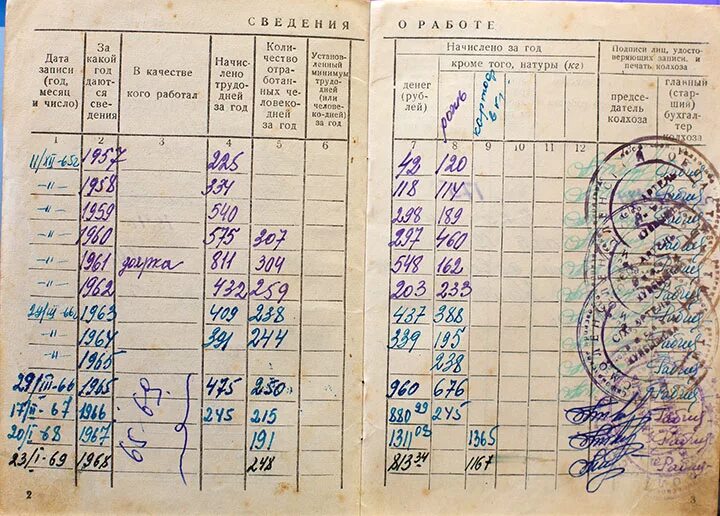 СВЕДЕНИЯ О РАБОТЕ
Дата записи (год, месяц и число)
За какой год даются сведения
В качестве кого работал
Начислено трудодней за год
Количество отработанных человекодней за год
Установленный минимум трудодней (или человекодней) за год
Начислено за год
денег (рублей)
кроме того, натуры (кг)
рожь
картоф.
Подписи лиц, удостоверяющих записи, и печать колхоза
председатель колхоза
главный (старший) бухгалтер колхоза
1 2 3 4 5 6 7 8 9 10 11 12
1957 225 42 120
-"- 1958 334 118 114
-"- 1959 540 298 189
-"- 1960 575 207 297 460
-"- 1961 доярка 811 304 548 162
-"- 1962 432 259 203 233
1963 409 238 437 388
-"- 1964 391 244 339 195
-"- 1965 238
29/III-66 1965 475 250 960 676
17/II-67 1966 245 215 880 99 245
20/I-68 1967 191 1311 08 1365
23/I-69 1968 248 813 34 1167
65-69.
2
3